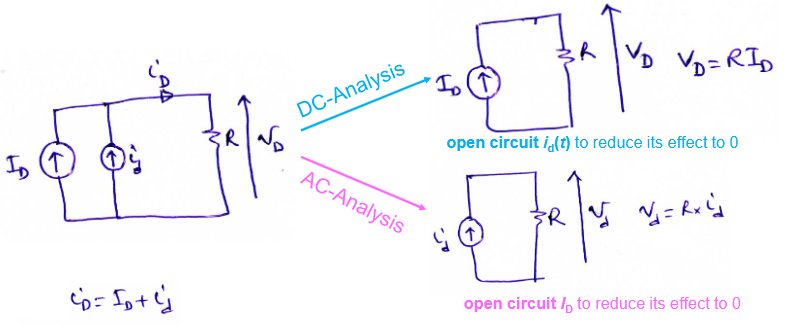 i_D
I_D
i_d
R
v_D
i_D = I_D + i_d
DC-Analysis
AC-Analysis
I_D
R
V_D
V_D = R I_D
open circuit i_d(t) to reduce its effect to 0
i_d
R
v_d
v_d = R x i_d
open circuit I_D to reduce its effect to 0